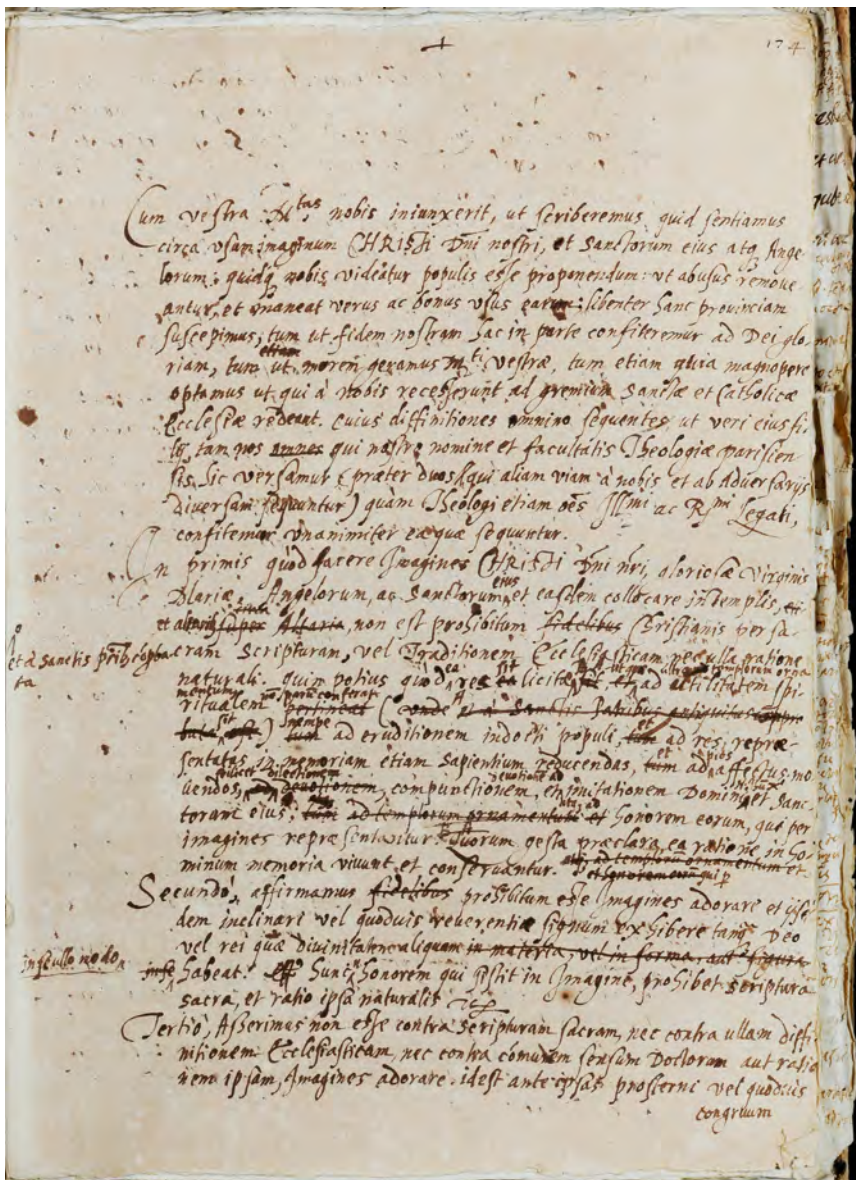 174
Cum vestra M.tas nobis iniunxerit, ut scriberemus quid sentiamus
circa usum imaginum CHRISTI Dni nostri, et Sanctorum eius atq. Ange-
lorum: quidq. nobis videatur populis esse proponendum: ut abusus remove-
antur, et maneat verus ac bonus usus earum: libenter hanc provinciam
suscepimus, tum ut fidem nostram hac in parte confiteremur ad Dei glo-
riam, tum etiam ut morem geramus M.ti vestræ, tum etiam quia magnopere
optamus ut qui à nobis recesserunt ad gremium Sanctæ et Catholicæ
Ecclesiæ redeant. Cuius diffinitiones omnino sequentes ut veri eius fi-
lij, tam nos omnes qui nostro nomine et facultatis Theologiæ parisien-
sis, hic versamur (præter duos qui aliam viam à nobis et ab Adversarijs
diversam sequuntur) quàm Theologi etiam oẽs Ill.mi ac R.mi Legati,
confitemur unanimiter ea quæ sequuntur.
In primis quòd facere Imagines CHRISTI Dni nri, gloriosæ Virginis
Mariæ, Angelorum, ac Sanctorum eius et easdem collocare in templis,
et super Altaria, non est prohibitum fidelibus Christianis per sa-
cram Scripturam, vel Traditionem Ecclesiasticam, nec ulla ratione
et à sanctis
naturali. quim potius quòd ea res licita et ad utilitatem spi-
ritualem pertineat (unde et à Sanctis Patribus antiquitus
est) nempe tum ad eruditionem indocti populi, tum et ad res repræ-
sentatas in memoriam etiam sapientium reducendas, tum et ad pios affectus mo-
vendos, dilectionem devotionem, compunctionem, et imitationem Domini et Sanc-
torum eius; tum ad templorum ornamentum et honorem eorum, qui per
imagines repræsentantur. Quorum gesta præclara ea ratione in ho-
minum memoria vivunt et conservantur. ad templorũ ornamentum et
et honorem eorum qui p
Secundo, affirmamus fidelibus prohibitum esse Imagines adorare et ijs-
dem inclinari vel quodvis reverentiæ signum exhibere tanq. Deo
vel rei quæ divinitatem aliquam in materia, vel in forma, aut figura
in se ullo modo
habeat. Hunc honorem qui sistit in Imagine, prohibet scriptura
sacra, et ratio ipsa naturalis
Tertiò, Asserimus non esse contra scripturam sacram, nec contra ullam diffi-
nitionem Ecclesiasticam, nec contra cõmunem sensum Doctorum aut ratio-
nem ipsam, Imagines adorare. idest ante ipsas prosterni vel quodvis
congruum